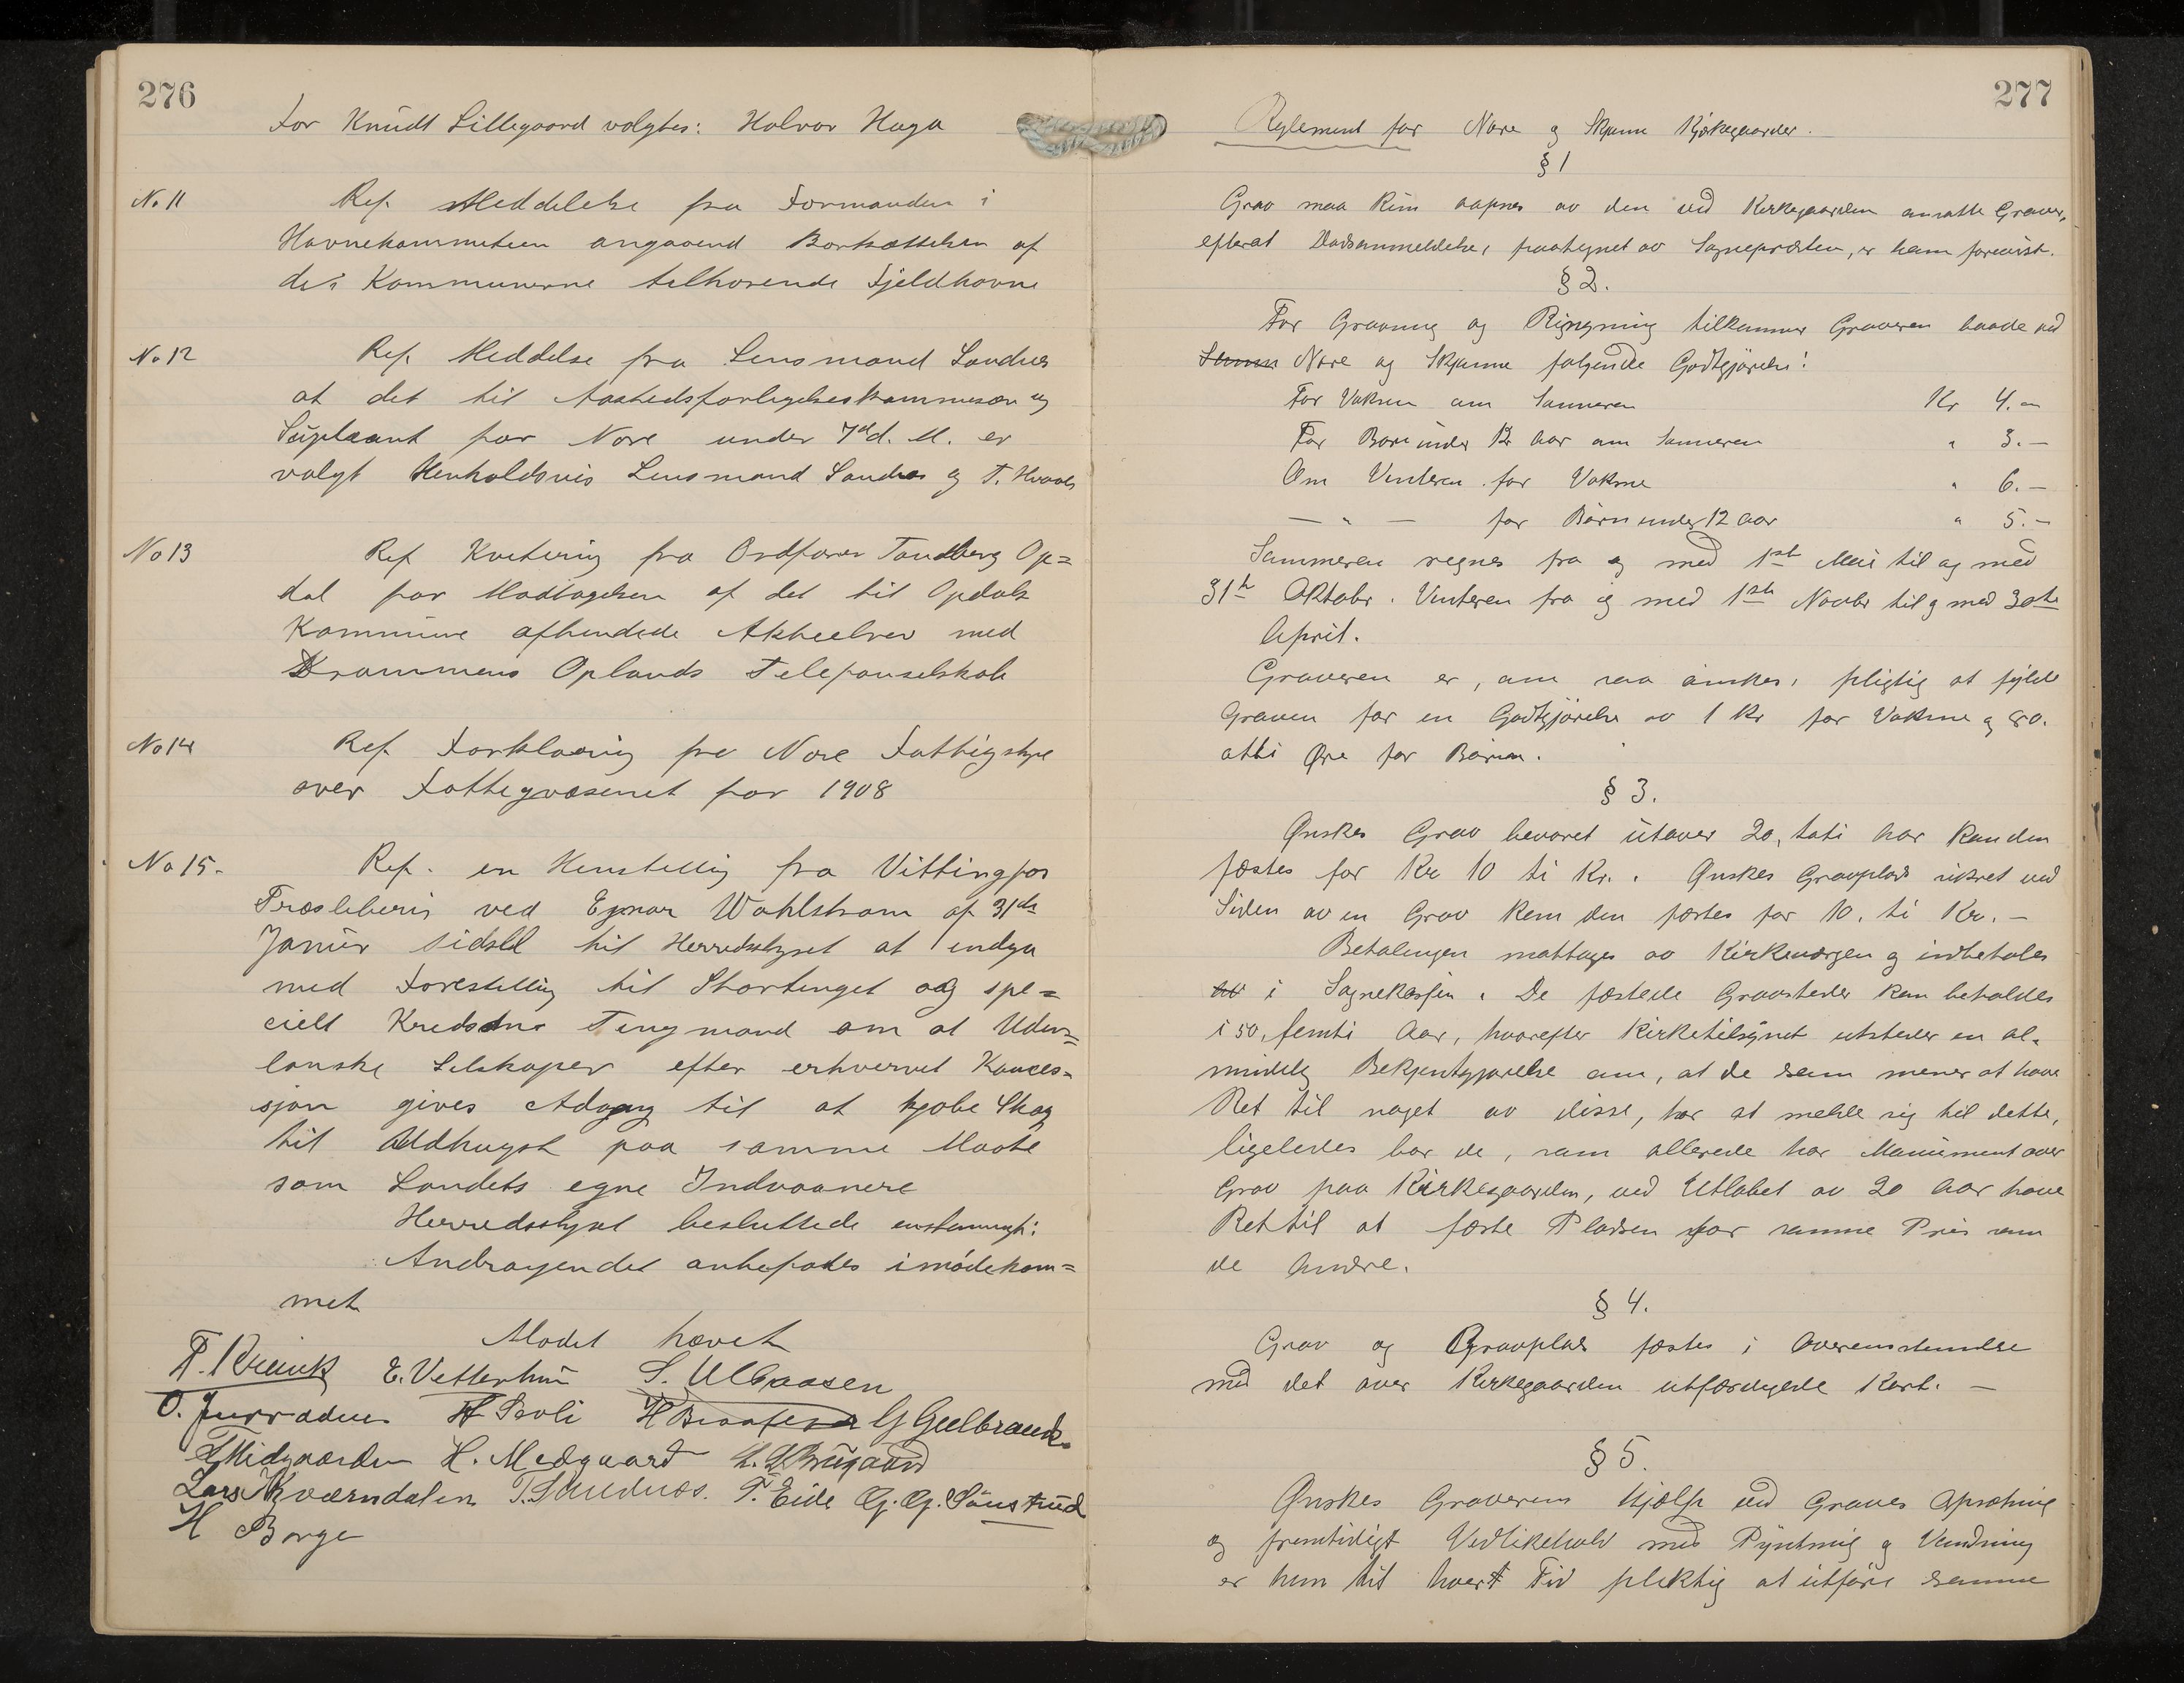 276
For Knudt Lillegaard valgtes: Halvor Haga
No 11
Ref. Meddelelse fra Formanden i
Havnekommiteen angaaend Bortsættelsen af
de i Kommunerne tilhørende Fjeldhavne
No 12
Ref. Meddelse fra Lensmand Sandnes
at det til Aastedsforligelseskommisær og
Suplæant for Nore under 7d d. M. er
valgt Henholdsvis Lensmand Sandnes og T. Hvaale
No 13
Ref Kvitering fra Ordfører Tandberg Op=
dal for Modtagelsen af det til Opdals
Kommune afhendede Aktiebrev med
Drammens Oplands Telefonselskab
No 14
Ref. Forklaring fra Nore Fattigstyre
over Fattigvæsenet for 1908
No 15.
Ref. en Henstillig fra Vittingfos
Træsliberi ved Egnar Wahlstrøm af 31te
Januar sidstl til Herredsstyret at indgaa
med Forestillig til Stortinget og spe=
cielt Kredsens Tingmand om at Uden=
lanske Selskaper efter erhvervet Konces=
sjon gives Adgang til at kjøbe Skog
til Udhugst paa samme Maate
som Landets egne Indvaanere
Herredsstyret besluttede enstemmigt:
Andragendet anbefales imødekom=
met
Mødet hævet
E. Vetterhus S. Ulbaasen
O. Juvraden H Søvli G Gulbrands
T Midgaarden H. Medgaard
Lars Kværndalen T. Sandnes. T. Eide G. G. Sønstrud
H Borge
277
Reglement for Nore og Skjønne Kjirkegaarder.
§ 1
Grav maa kun aapnes av den ved Kirkegaarden ansatte Graver,
efterat Dødsanmeldelse, paategnet av Sognepræsten, er ham forevist.
§ 2.
For Gravning og Ringning tilkommer Graveren baade ved
Nore og Skjønne følgende Godtgjørelse:
For Voksne om Sommeren Kr 4.–
For Børn under 12 Aar om Sommeren " 3.–
Om Vinteren for Voksne " 6.–
– " – for Børn under 12 Aar " 5.–
Sommeren regnes fra og med 1ste Mai til og med
31te Oktober. Vinteren fra og med 1ste Novbr til og med 30te
April.
Graveren er, om saa ønskes, pligtig at fylde
Graven for en Godtgjørelse av 1 Kr for Voksne og 80.
otti Øre for Børn.
§ 3.
Ønskes Grav bevaret utover 20, tati Aar kan den
fæstes for Kr 10 ti Kr. Ønskes Gravplads sikret ved
Siden av en Grav kan den fæstes for 10. ti Kr. –
Betalingen mottages av Kirkeværgen og indbetales
i Sognekassen. De fæstede Gravsteder kan beholdes
i 50, femti Aar, hvorefter Kirketilsynet utsteder en al-
mindelig Bekjentgjørelse om, at de som mener at have
Ret til noget av disse, har at melde sig til dette,
ligeledes bør de, som allerede har Monument over
Grav paa Kirkegaarden, ved Utløbet av 20 Aar have
Ret til at fæste Pladsen for samme Pris som
de Andre.
§ 4.
Grav og Gravplads fæstes i Overensstemmelse
med det over Kirkegaarden utfærdigede Kart. –
§ 5.
Ønskes Graverens Hjælp ved Graves Opsætning
og fremtidigt Vedlikehold med Pyntning og Vanding
er han til hver Tid pliktig at utføre samme